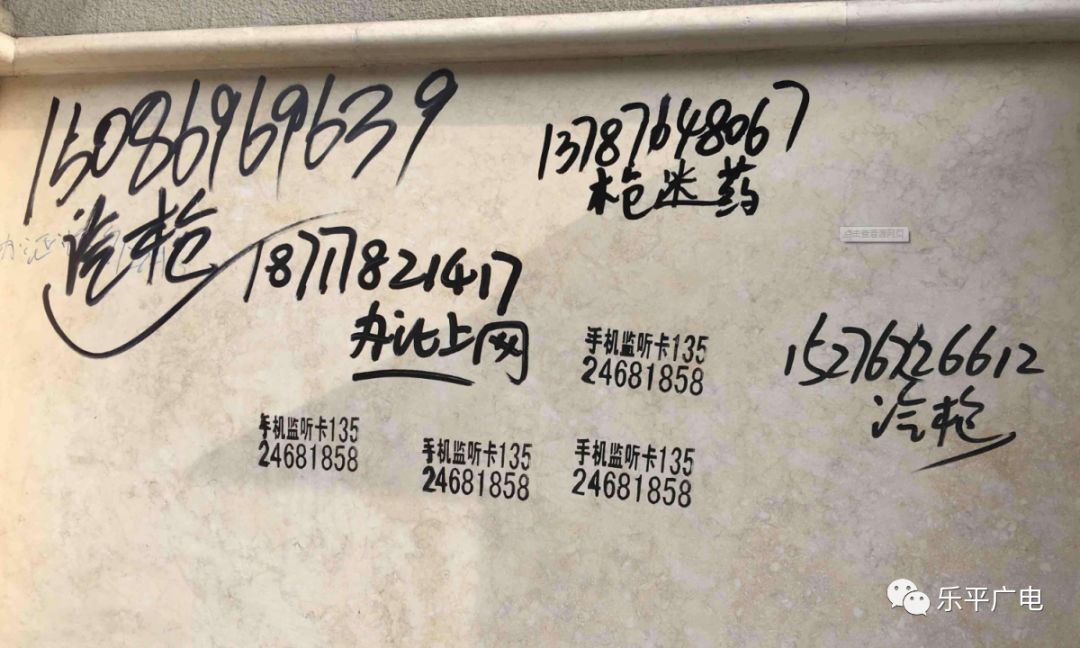 15086969639
汽枪
13787648067
枪迷药
点击查看源网页
办证
18717821417
办证上网
手机监听卡135
24681858
15276726612
汽枪
手机监听卡135
24681858
手机监听卡135
24681858
手机监听卡135
24681858
乐平广电